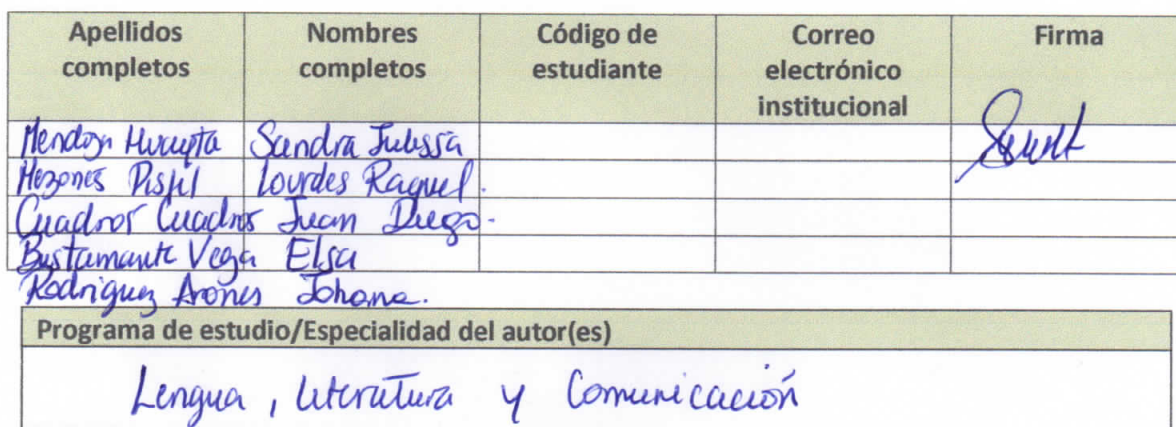 Apellidos completos Nombres completos Código de estudiante Correo electrónico institucional Firma
Mendoza Sandra Julissa
Mezones Pisfil Lourdes Raquel.
Cuadros Cuadros Juan Diego.
Bustamante Vega Elsa
Rodriguez Arones Johana.
Programa de estudio/Especialidad del autor(es)
Lengua, Literatura y Comunicación